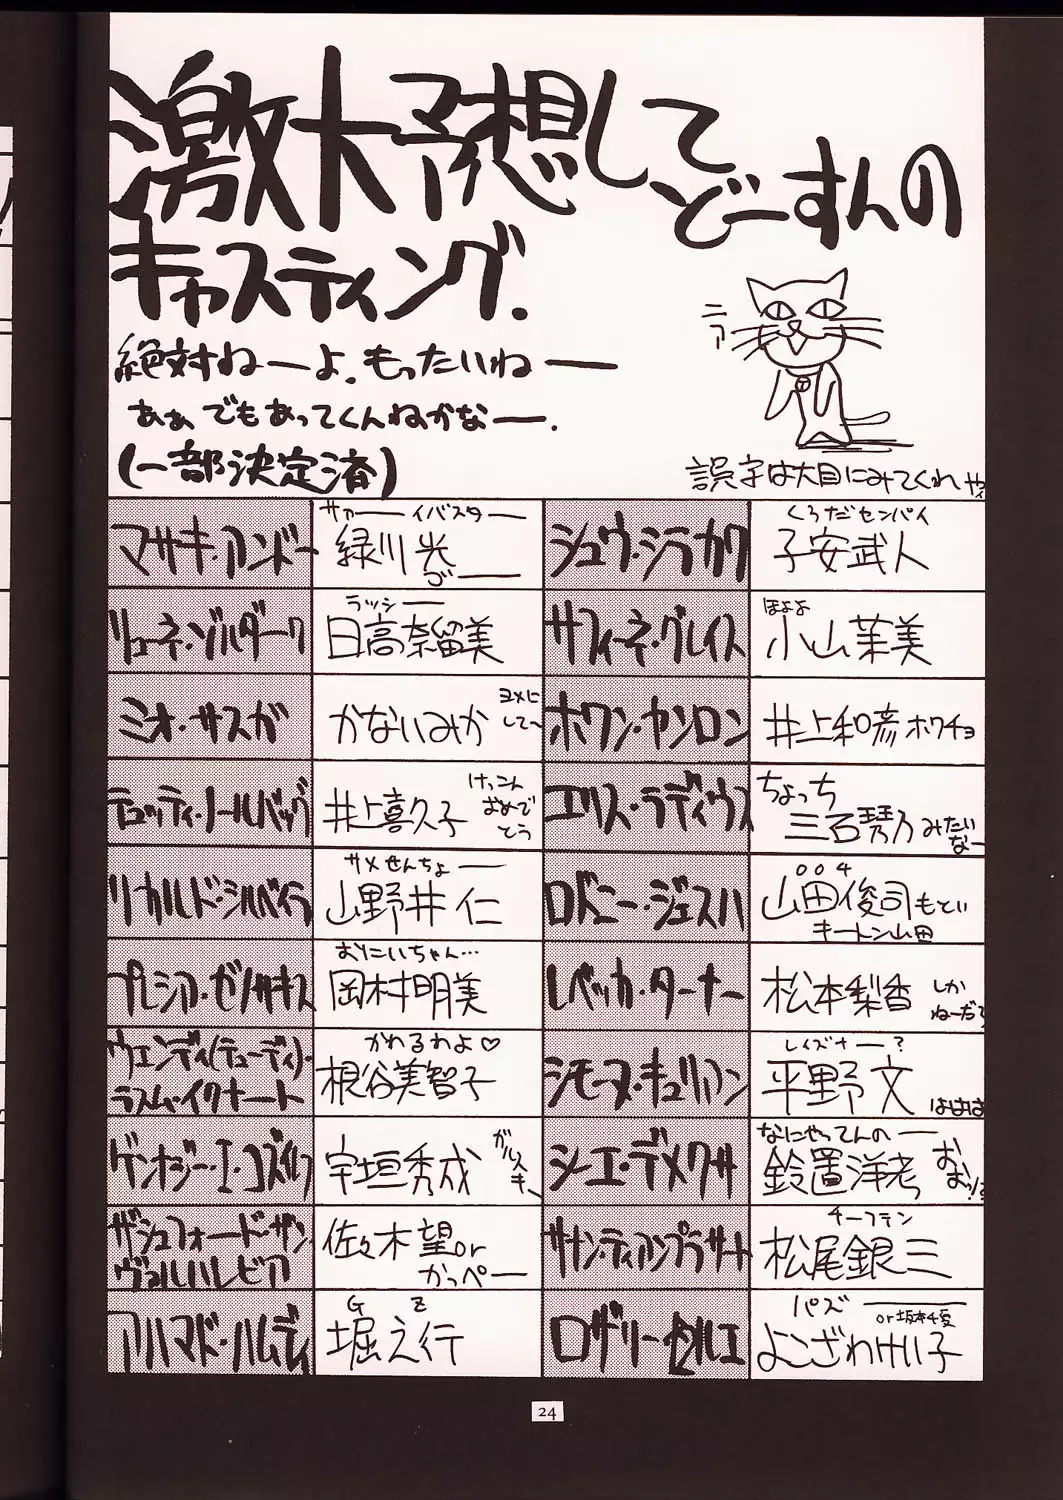 激大予想してどーすんの
キャスティング.
絶対ねーよ.もったいねー
あぁ でもあってくんねかなー.
(一部決定済)
ニァ
誤字は大目にみてくれ
マサキ・アンドー
サァーーイバスター
緑川光
ゴー
シュウ・シラカワ
くろだセンパイ
子安武人
リューネ・ゾルダーク
ラッシー
日高奈留美
サフィーネ・グレイス
ほよよ
小山茉美
ミオ・サスガ
かないみか
ヨメに
して〜
ホワン・ヤンロン
井上和彦 ホワチョ
テュッティ・ノールバック
井上喜久子
けっこん
おめで
とう
エリス・ラディウス
ちょっち
三石琴乃 みたい
なー
リカルド・シルベイラ
サメせんちょー
山野井 仁
ロドニー・ジェスハ
004
山田俊司 もとい
キートン山田
プレシア・ゼノサキス
おにいちゃん…
岡村明美
レベッカ・ターナー
松本梨香
しか
ねーだろ
ウェンディ(テューディ)・
ラスム・イクナート
かわるわよ♡
根谷美智子
シモーヌ・キュリアン
レイズナー?
平野 文
ははは
ゲンナジー・I・コズイレフ
宇垣秀成
シーエ・デメクサ
なにやってんのー
鈴置洋孝
おおッ!?
ザシュフォード・ザン・
ヴァルハレビア
佐々木望or
かっぺー
サナン・ティアンプラサート
チーフテン
松尾銀三
アハマド・ハムディ
G Z
堀之行
ロザリー・セルエ
パズー
or 坂本千夏
よこざわけい子
24